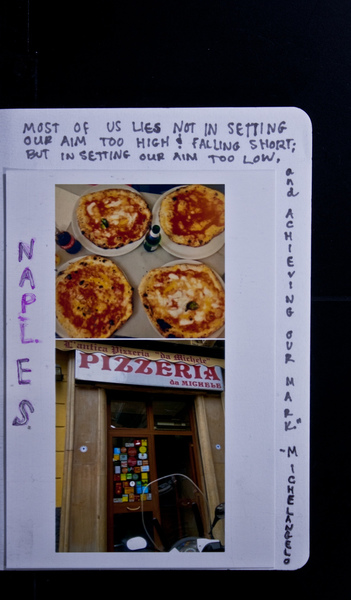 MOST OF US LIES NOT IN SETTING
OUR AIM TOO HIGH & FALLING SHORT;
BUT IN SETTING OUR AIM TOO LOW,
and ACHIEVING OUR MARK."
-MICHELANGELO
NAPLES.
L'antica Pizzeria "da Michele"
PIZZERIA
da MICHELE